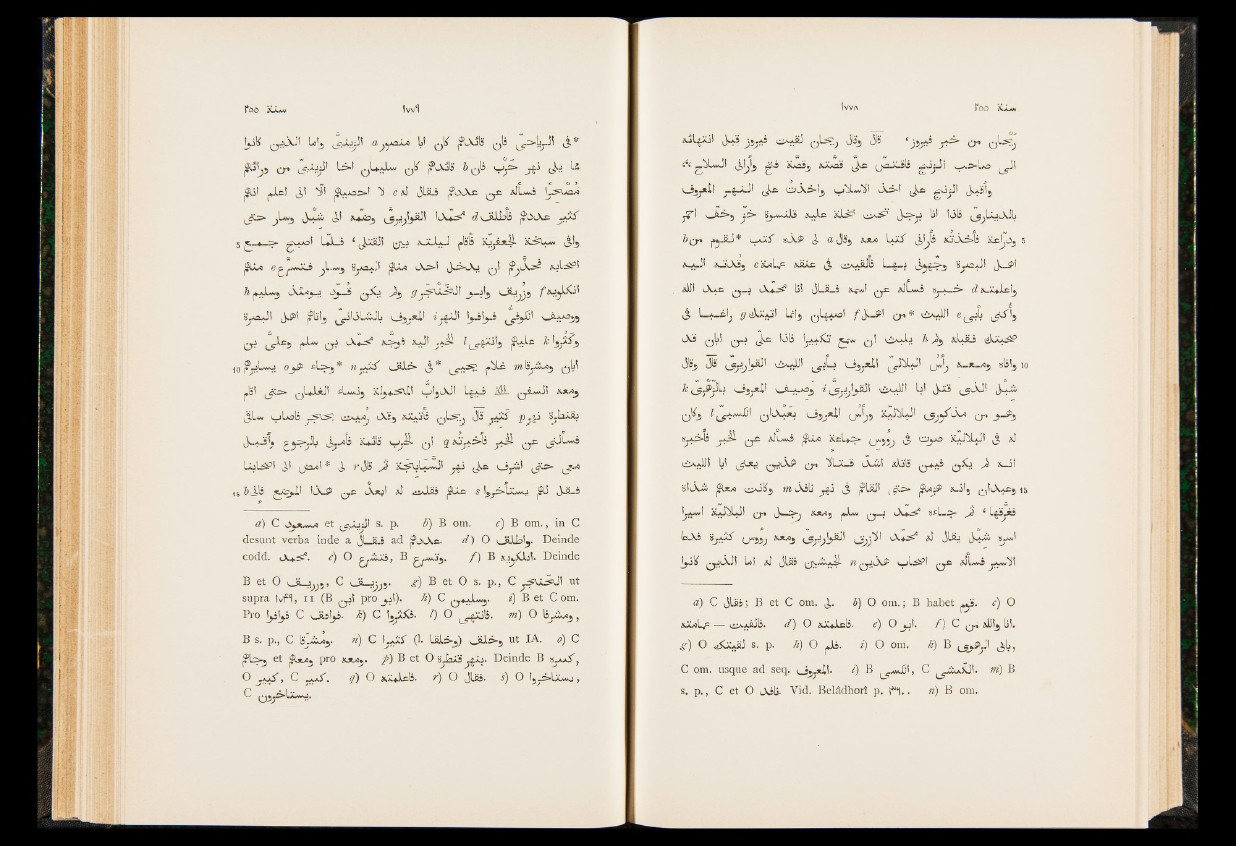 سنة ٢٥٥ ١٧٧٨
ريحان من خبر فيروز، قال وقال ريحان لقيت فيروز قبل انتهائه
الى صاحب الزنج فاقتصّ علىّ قصّته وقصّة فتح وأراني السلاح،
وأقبل الزنج على اخذ الاسلاب واخذت على النهر المعروف
بالدينارى فاذا انا برجل تحت نخلة عليه قلنسوة خزّ وخفّ احمر
ودرّاعة فأخذته فأرانى كتبا معه وقال a لى هذه كتب *لقوم من b
اهل البصرة وجّهونى بها فألقيت فى عنقه عمامة c وقدته اليه
واعلمته d خبره فسأله عن اسمه فقال انا محمّد بن عبد الله
وأكنى بأبى e الليث *من اهل f اصبهان وانما اتيتك g راغبا فى
صحبتك فقبله ولم h يلبث ان سمع تكبيرا فاذا على بن ابان قد
وافاه ومعه رأس البلالىّ المعروف بأبى الليث القواريرىّ قال وقال
شبل الذى قتل ابا الليث القواريرىّ i وصيف المعروف بالزهرىّ k
وهو من مذكورى البلاليّة ورأس المعروف بعبدان الكسبىّ l وكان
له فى البلاليّة صوت فى رؤوس جماعة منهم فسأله عن الخبر فأخبره
انه لم يكن فيمن قاتله اشدّ قتالا من هذين يعنى ابا الليث
وعبدان وانه هزمهم حتى القاهم فى نهر نافذ m وكانت معهم شذاة
فغرّقها، ثم جاءه محمّد بن سلم ومعه رجل من البلاليّة اسيرا
اسره شبل يقال له محمّد الازرق القواريرىّ ومعه رؤوس كثيرة فدعا
الاسير فسأله عن اصحاب هذين n الجيشين فقال له اما الذين كانوا
a) C فقال; B et C om. لى. b) O om.; B habet قوم. c) O
فالقيت — عمامته. d) O فاعلمته. e) O ابو. f) C انا والله من.
g) O لقيتك s. p. h) O فلم. i) O om. k) B بابى الزهرى,
C om. usque ad seq. المعروف. l) B الكسى, C الكسبى. m) B
s. p., C et O نافد. Vid. Belâdhorî p. ٣٦٠. n) B om.
سنة ٢٥٥ ١٧٧٩
*فى الرياحىّ فان قائدهم كان ابا منصور a الزينبىّ واما الذين كانوا
ممّا يلى نهر حرب فان b قائدهم كان سليمان اخا الزينبىّ من ورائهم
مُصْحِرًا فسأله عن عددهم فقال له c لا احصيهم الّا انى اعلم انهم
كثير عددهم فأطلق d محمّدا القواريرىّ وضمّه الى شبل وسار حتى
وافى سبخة الجعفريّة فأقام ليلته بين القتلى، فلمّا اصبح جمع
اصحابه فحذّرهم ان يدخل احد منهم البصرة وسار فتسرّع e منهم
انكلويه f وزريق وابو الخنجر g ولم يكن قوّد يومئذ وسليم h
ووصيف الكوفىّ فوافوا النهر i المعروف بالشاذانىّ واتاهم اهل البصرة
وكثروا k عليهم وانتهى l الخبر اليه فوجّه محمّد بن سلم وعلىّ بن
ابان ومشرقا m غلام يحيى *فى خلق كثير n *وجاء هو o يسايرهم
ومعه السفن التى فيها الدوابّ المحمولة ونساء الغلمان حتى اقام
بقنطرة نهر p كثير قال ريحان فأتيته وقد رميت بحجر فأصاب ساقى
فسألنى عن الخبر فأخبرته q ان الحرب قائمة فأمرنى بالرجوع وأقبل
معى حتى اشرف على نهر السيابجة ثم قال r لى *امض الى اصحابنا
فقل لهم يستأخروا s عنهم فقلت له ابعد عن هذا الموضع فانى b
a) C مسعود et الزينبى s. p. b) B om. c) B om., in C
desunt verba inde a فقال ad عددهم. d) O واطلق. Deinde
codd. محمد. e) O فتشرع, B وتسرع. f) B انكلويه. Deinde
B et O وزريق, C ورزيق. g) B et O s. p., C الخنجر ut
supra ١٧٤٩, 11 (B ابن pro ابو). h) C وسليمن. i) B et C om.
Pro فوافوا C فوافق. k) C فكثر. l) O فانتهى. m) O ومشرقا,
B s. p., C ومشرقا. n) C كثيرا (l. وخلفا) وخلف ut IA. o) C
وجاهم et ومعهم pro ومعه. p) B et O نهر قنطرة. Deinde B كبير,
O كبير, C كبير. q) O فاعلمته. r) O فقال. s) O يستاخروا,
C يستاخرون.